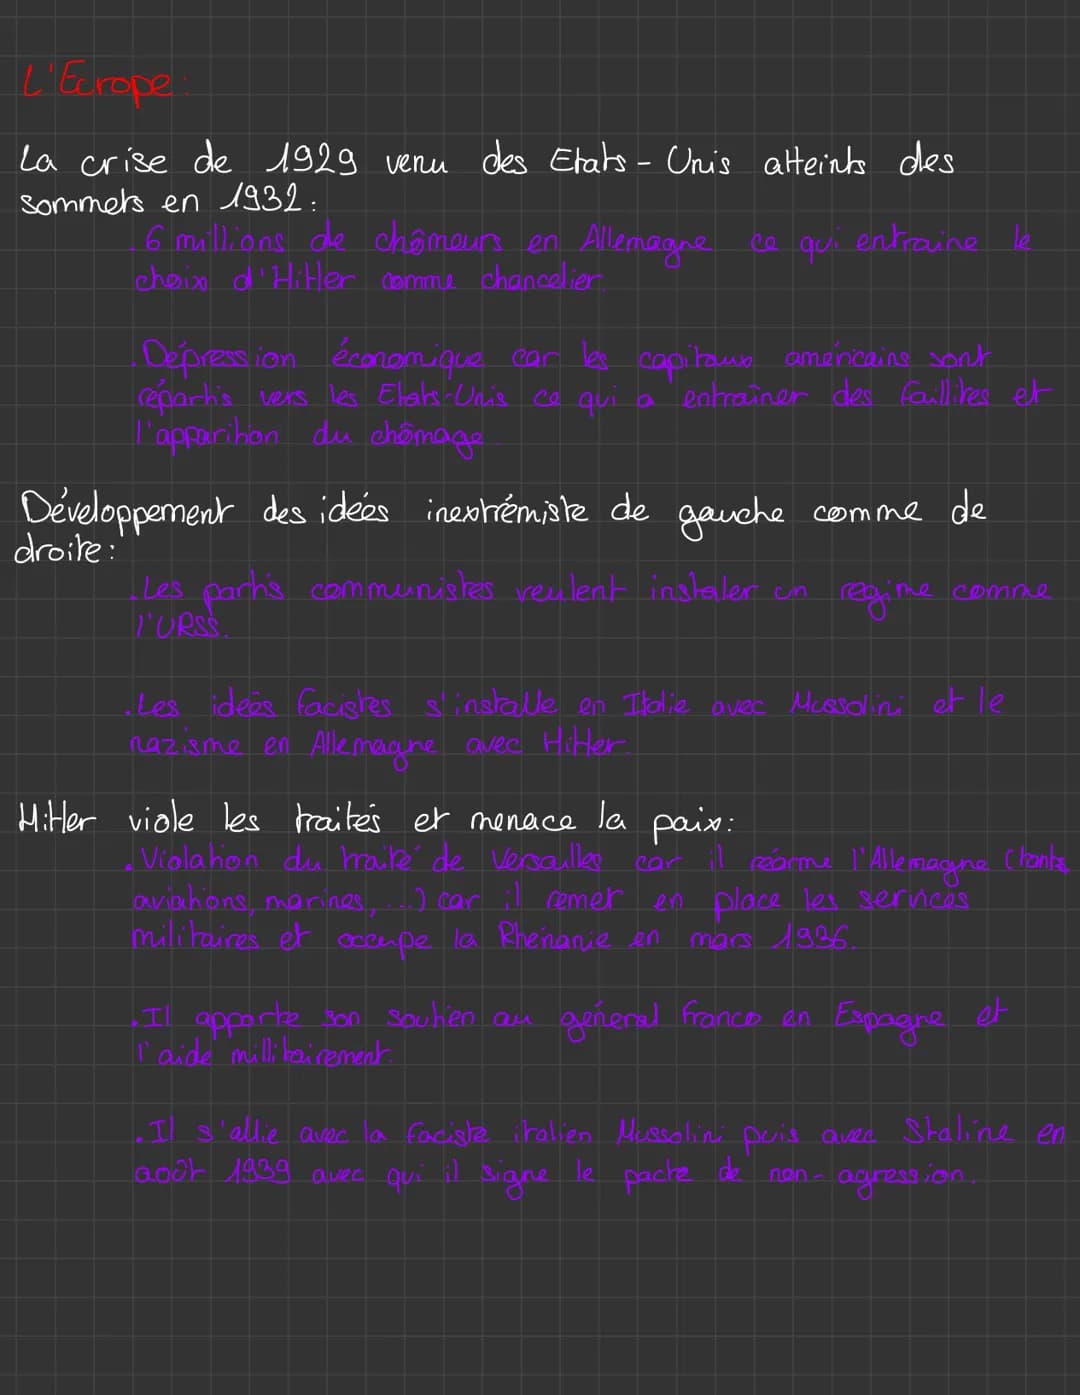 L'Europe:
La crise de 1929 venu des Etats-Unis atteints des
sommets en 1932:
.6 millions de chômeurs en Allemagne ce qui entraine le
choix d'Hitler comme chancelier.
.Dépression économique car les capitaux américains sont
répartis vers les Etats-Unis ce qui a entraîner des faillites et
l'apparition du chômage.
Développement des idées inextrémiste de gauche comme de
droite:
.Les partis communistes veulent instaler un régime comme
l'URSS.
.Les idées facistes s'installe en Italie avec Mussolini et le
nazisme en Allemagne avec Hitler.
Hitler viole les traités et menace la paix:
.Violation du traité de Versailles car il réarme l'Allemagne (tanks,
aviations, marines,...) car il remet en place les services
militaires et occupe la Rhénanie en mars 1936.
.Il apporte son soutien au général Franco en Espagne et
l'aide millitairement.
.Il s'allie avec la faciste italien Mussolini puis avec Staline en
août 1939 avec qui il signe le pacte de non-agression.